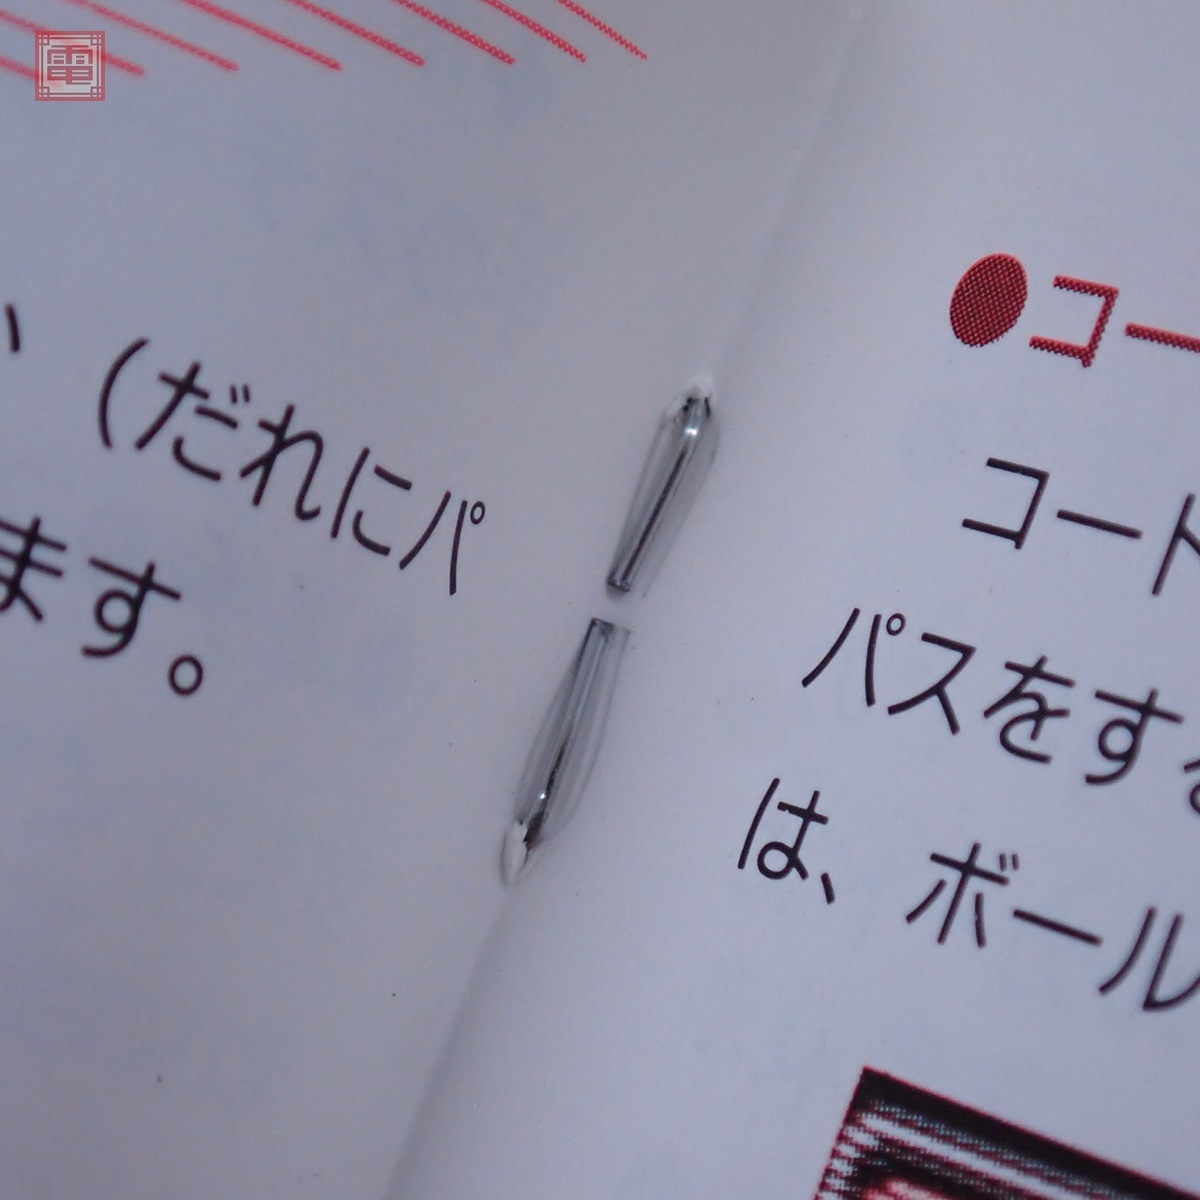 電
(だれにパ
ます。
●コー
コート
パスをする
は、ボール